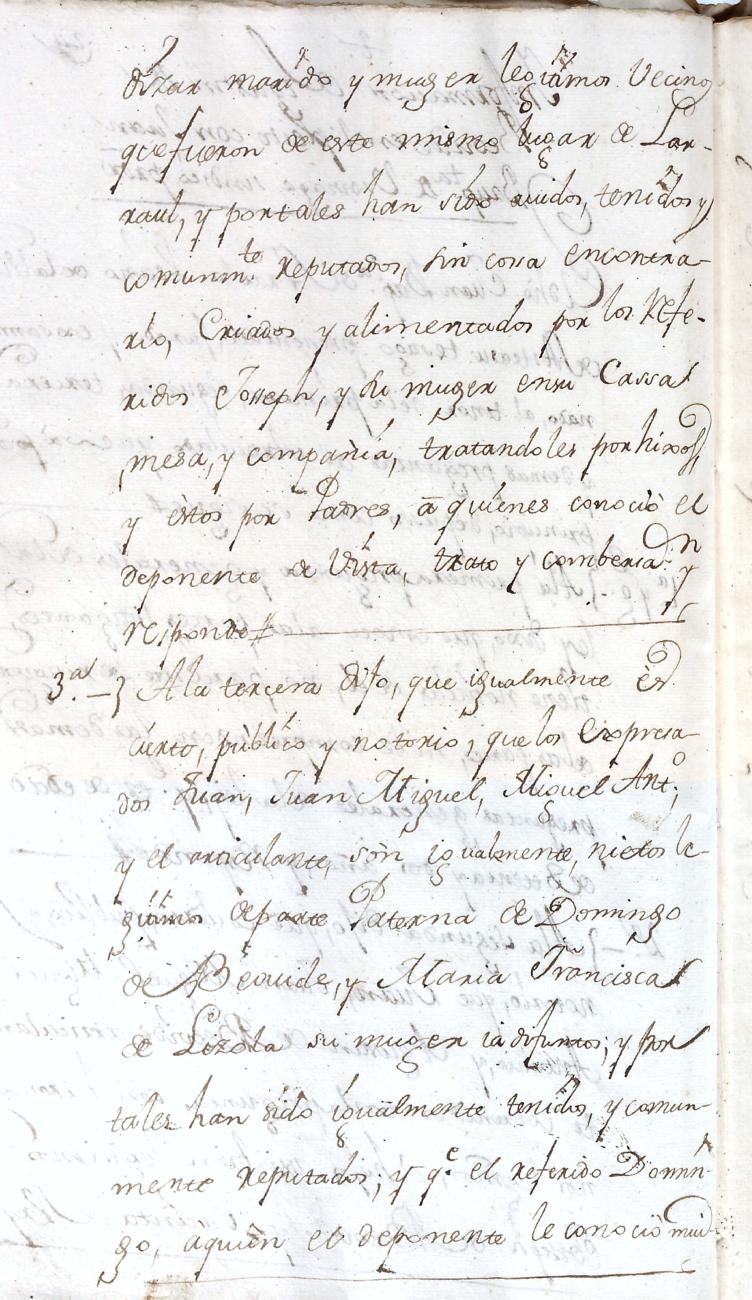 dizar marido y muger legitimos Vecinos
que fueron de este mismo lugar de Lar-
raul, y por tales han sido auidos, tenidos y
comunm.te reputados, sin cosa encontra-
rio, Criados y alimentados por los Refe-
ridos Joseph, y su muger en su Cassa
mesa, y compañia, tratandoles por hixos,
y êstos por Padres, â quienes conociò el
deponente de Vista, trato y combersa.on y
responde#
3.a – } A la tercera dijo, que igualmente ês
cierto, publico y notorio, que los Expresa-
dos Juan, Juan Miguel, Miguel Ant.o,
y el articulante, són igualmente, nietos le-
gitimos de parte Paterna de Domingo
de Beaude, y Maria Francisca
de Lizola su muger ia difuntos; y por
tales han sido igualmente tenidos, y comun-
mente reputados; y q.e el referido Domin-
go, aquien, el deponente le conociò mui